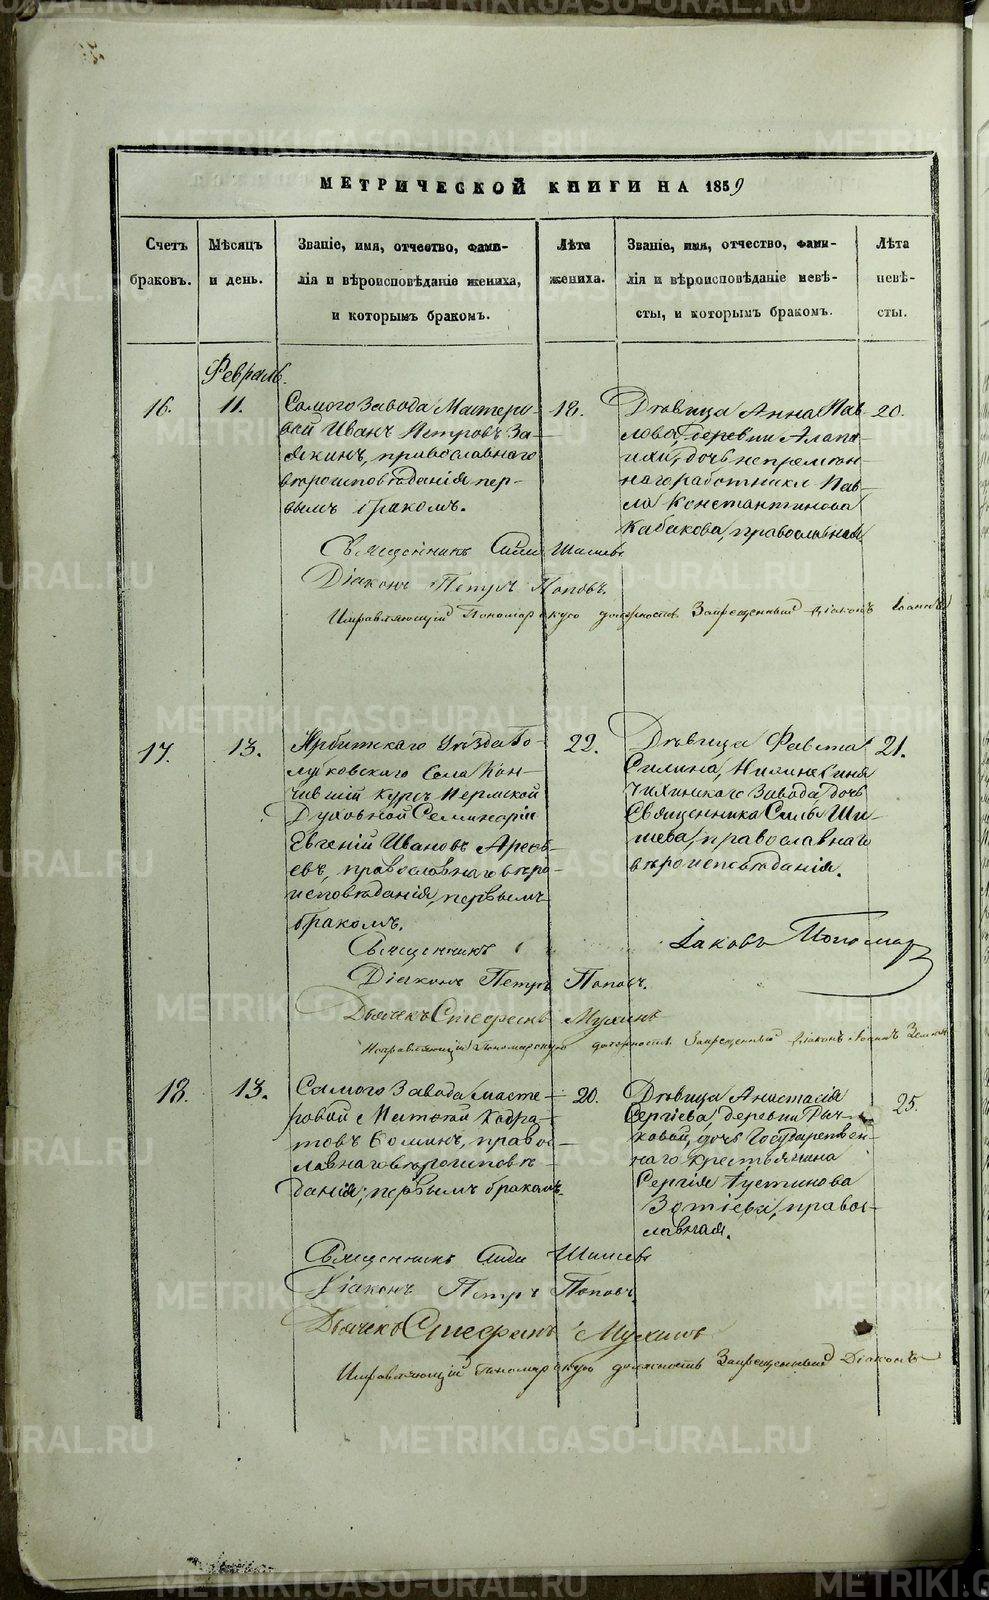 МЕТРИЧЕСКОЙ КНИГИ НА 1859
Счетъ браковъ.
Мѣсяцъ и день.
Званіе, имя, отчество, фами-
лія и вѣроисповѣданіе жениха,
и которымъ бракомъ.
Лѣта жениха.
Званіе, имя, отчество, фами-
лія и вѣроисповѣданіе невѣ-
сты, и которымъ бракомъ.
Лѣта невѣ-
сты.
Февраль.
16.
11.
Самого завода Мастеро-
вой Иванъ Петровъ За-
якинъ, православнаго
вѣроисповѣданія пер-
вымъ бракомъ.
19.
Дѣвица Анна Пав-
лова, деревни Алапа-
ихи, дочь непремѣн-
наго работника Пав-
ла Константинова
Кабакова, православная
20.
Священникъ Сила Шишевъ
Діаконъ Петръ Поповъ.
Исправляющій Пономарскую должность Запрещенный Діаконъ Іоаннъ
17.
13.
Ирбитскаго Уѣзда Го-
лубковскаго Села Кон-
чившій курсъ Пермской
Духовной Семинаріи
Евгеній Ивановъ Арефь-
евъ, православнаго вѣро-
исповѣданія, первымъ
бракомъ.
22.
Дѣвица Фавста
Силина, Нижнесиня-
чихинскаго Завода, дочь
Священника Силы Ши-
шева, православнаго
вѣроисповѣданія.
21.
Священникъ
Іаковъ Пономар
Діаконъ Петръ Поповъ.
Дьячекъ Стефанъ Мухинъ
Исправляющій Пономарскую должность Запрещенный Діаконъ Іоаннъ
18.
13.
Самого Завода масте-
ровой Матвѣй Кодра-
товъ Ѳоминъ, право-
славнаго вѣроисповѣ-
данія, первымъ бракомъ.
20.
Дѣвица Анастасія
Сергіева, деревни Тыч-
ковой, дочь Государствен-
наго крестьянина
Сергія Іустинова
Зотіева, право-
славная.
25.
Священникъ Сила Шишевъ
Діаконъ Петръ Поповъ.
Дьячекъ Стефанъ Мухинъ
Исправляющій Пономарскую должность Запрещенный Діаконъ
METRIKI.GASO-URAL.RU